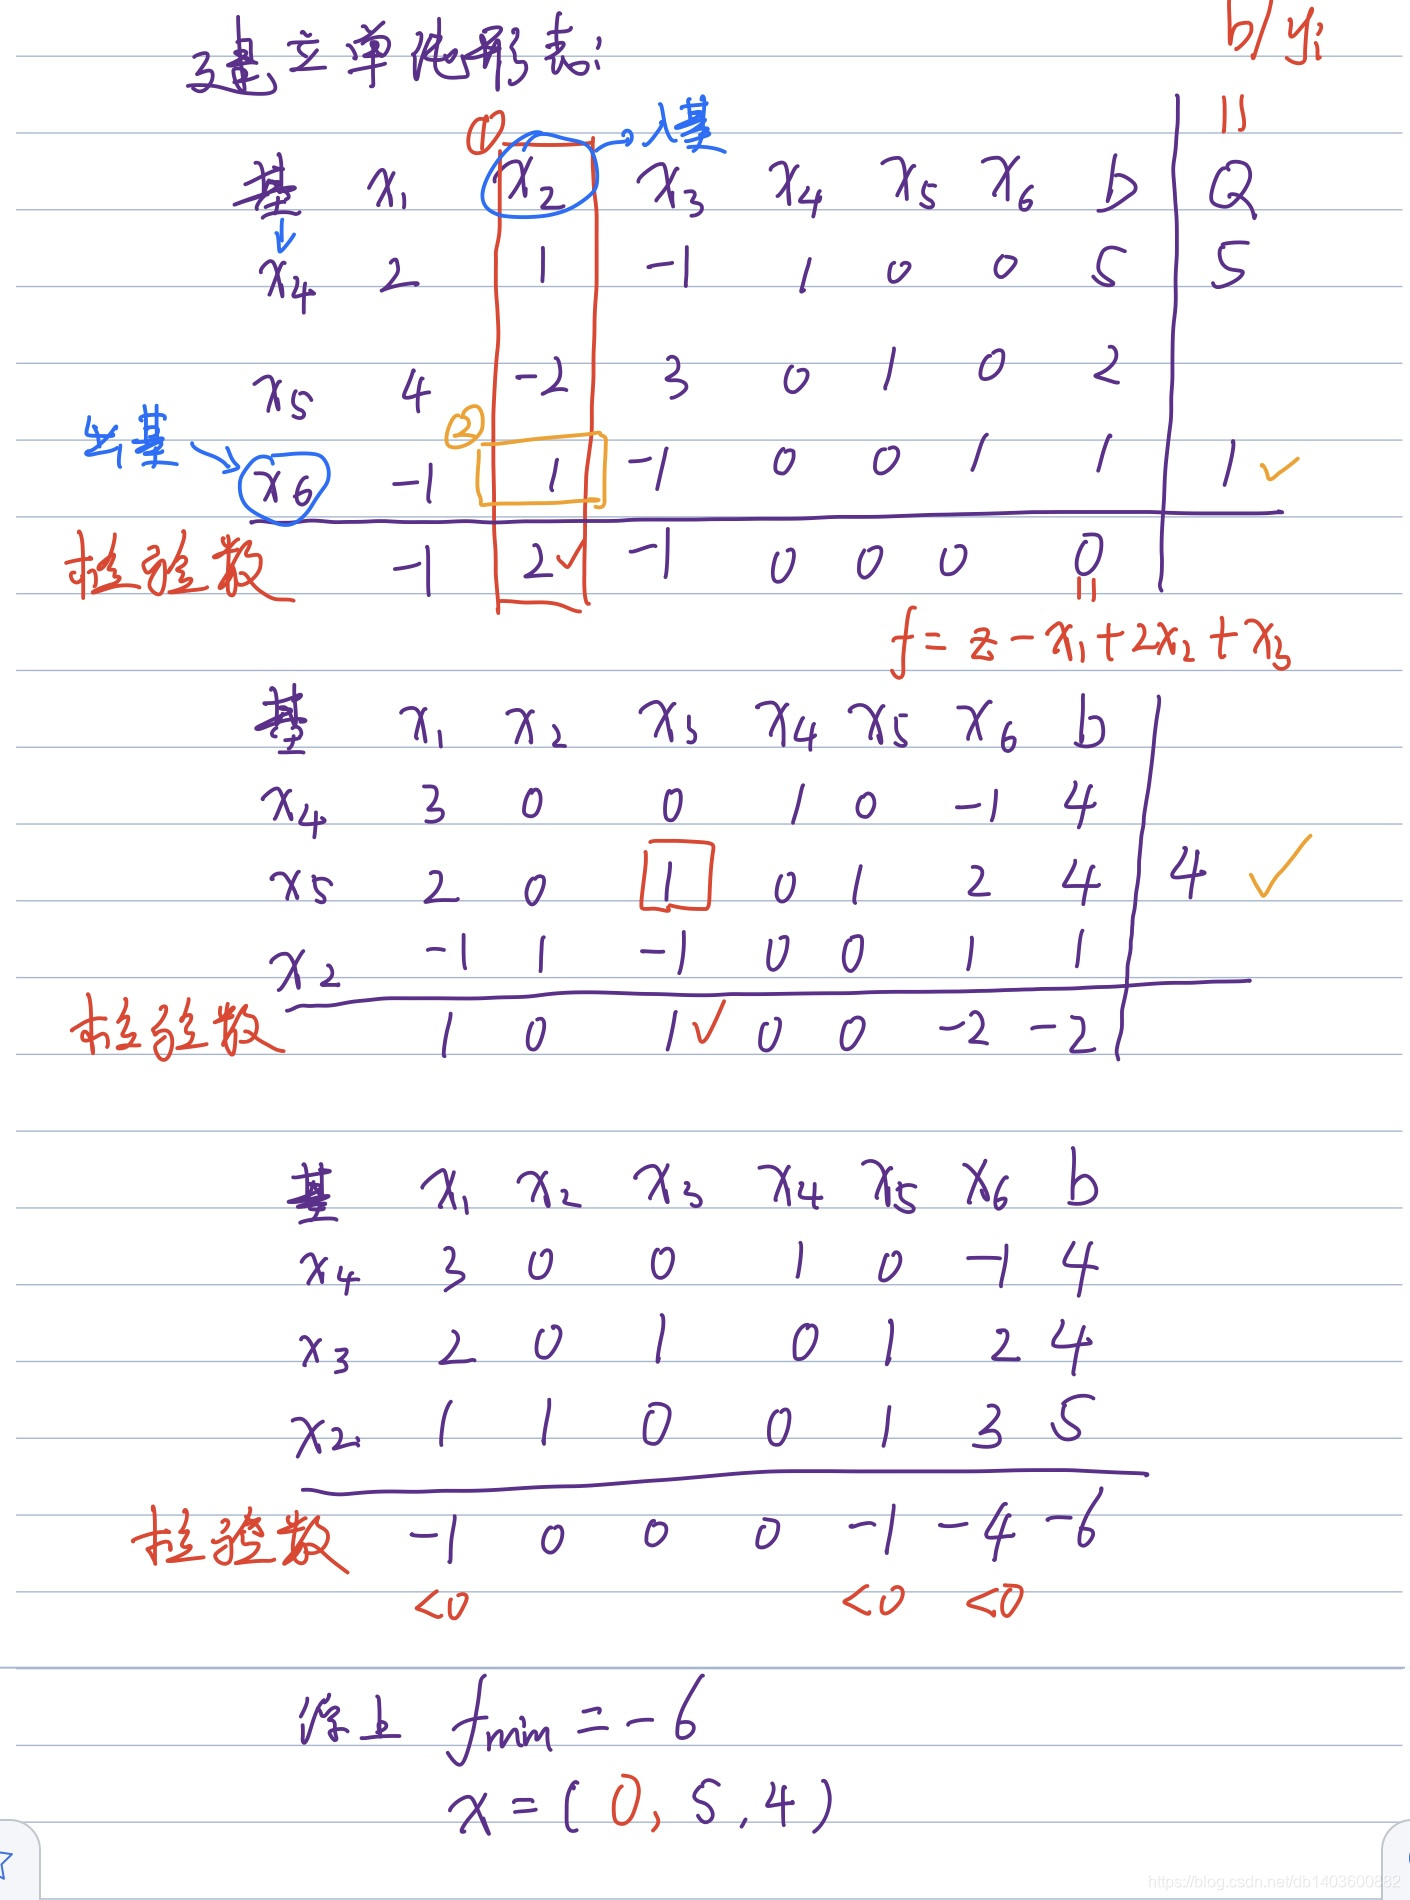 建立单纯形表:
b/yi
=
① →入基
基 x1 x2 x3 x4 x5 x6 b Q
x4 2 1 -1 1 0 0 5 5
x5 4 -2 3 0 1 0 2
②
出基→ x6 -1 1 -1 0 0 1 1 1 ✓
检验数 -1 2✓ -1 0 0 0 0
=
f = z - x1 + 2x2 + x3
基 x1 x2 x3 x4 x5 x6 b
x4 3 0 0 1 0 -1 4
x5 2 0 1 0 1 2 4 4 ✓
x2 -1 1 -1 0 0 1 1
检验数 1 0 1✓ 0 0 -2 -2
基 x1 x2 x3 x4 x5 x6 b
x4 3 0 0 1 0 -1 4
x3 2 0 1 0 1 2 4
x2 1 1 0 0 1 3 5
检验数 -1 0 0 0 -1 -4 -6
<0 <0 <0
综上 fmin = -6
x = ( 0, 5, 4 )
https://blog.csdn.net/db1403600882